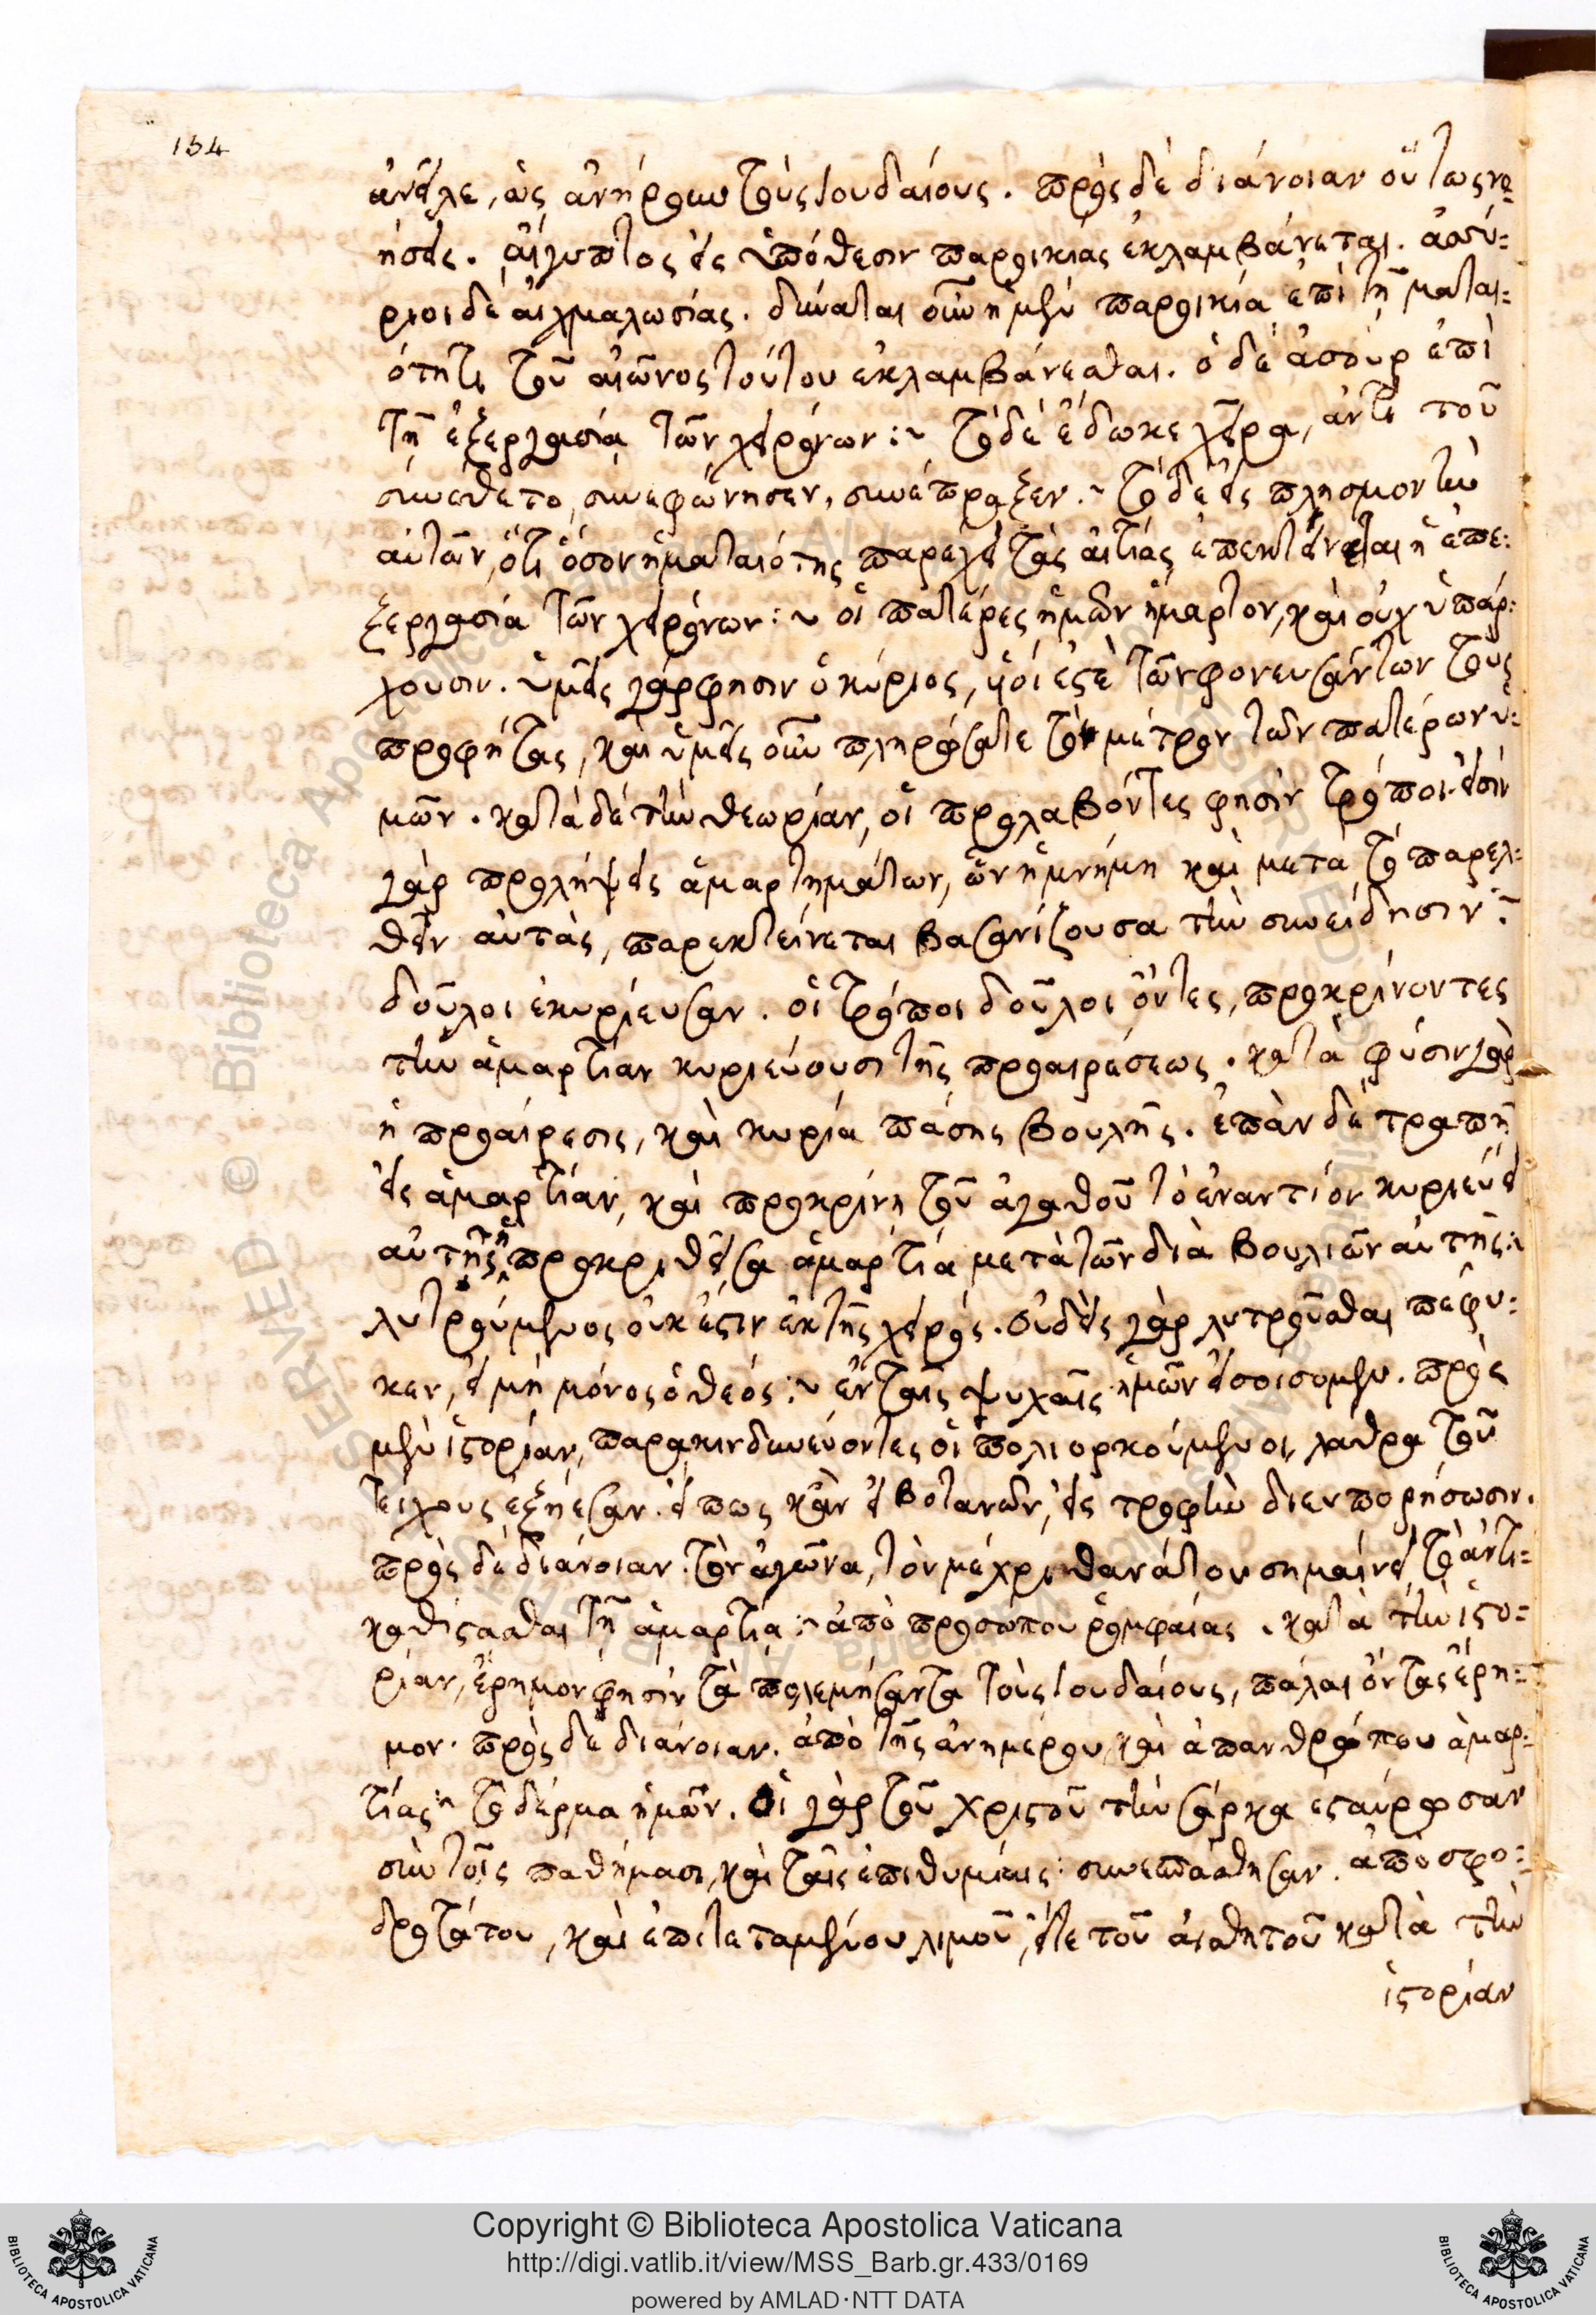 134
ἀνεῖλε, ὡς ἀνήρουν τοὺς Ἰουδαίους. πρὸς δὲ διάνοιαν οὕτως νο
ήσεις. αἴγυπτος εἰς ὑπόθεσιν παροικίας ἐκλαμβάνεται. ἀσύ-
ριοι δὲ αἰχμαλωσίας. δύναται οὖν ἡ μὲν παροικία ἐπὶ τῇ μαται-
ότητι τοῦ αἰῶνος τούτου ἐκλαμβάνεσθαι. ὁ δὲ ἀσοὺρ ἐπὶ
τῇ ἐξεργασίᾳ τῶν χειρόνων :~ τὸ δὲ ἔδωκε χεῖρα, ἀντὶ τοῦ
συνέθετο, συνεφώνησεν, συνέπραξεν.~ τὸ δὲ εἰς πλησμονὴν
αὐτῶν, ὅτι ὅσον ἡ ματαιότης παρέχει τὰς αἰτίας ἐπεκτείνεται ἡ ἐπε-
ξεργασία τῶν χειρόνων :~ οἱ πατέρες ἡμῶν ἥμαρτον, καὶ οὐχ ὑπάρ-
χουσιν. ὑμεῖς γάρ φησιν ὁ κύριος, υἱοί ἐστὲ τῶν φονευσάντων τοὺς
προφήτας, καὶ ὑμεῖς οὖν πληρώσατε τὸ μέτρον τῶν πατέρων ὑ-
μῶν. κατὰ δὲ τὴν θεωρίαν, οἱ προλαβόντες φησὶν τρόποι. εἰσὶν
γὰρ προλήψεις ἁμαρτημάτων, ὧν ἡ μνήμη καὶ μετὰ τὸ παρελ-
θεῖν αὐτὰς, παρεκτείνεται βασανίζουσα τὴν συνείδησιν :~
δοῦλοι ἐκυρίευσαν. οἱ τρόποι δοῦλοι ὄντες, προκρίνοντες
τὴν ἁμαρτίαν κυριεύουσι τῆς προαιρέσεως. κατὰ φύσιν γὰρ
ἡ προαίρεσις, καὶ κυρία πάσης βουλῆς. ἐπὰν δὲ τραπῇ
εἰς ἁμαρτίαν, καὶ προκρίνῃ τοῦ ἀγαθοῦ τὸ ἐναντίον κυριεύει
αὐτῆς ἡ προκριθεῖσα ἁμαρτία μετὰ τῶν διὰ βουλιῶν αὐτῆς :~
λυτρούμενος οὐκ ἔστιν ἐκ τῆς χειρός. οὐδεὶς γὰρ λυτροῦσθαι πέφυ-
κεν, εἰ μὴ μόνος ὁ θεός :~ ἐν ταῖς ψυχαῖς ἡμῶν εἰσοίσομεν. πρὸς
μὲν ἱστορίαν, παρακινδυνεύοντες οἱ πολιορκούμενοι, λάθρα τοῦ
τείχους ἐξῄεσαν. εἴ πως κἂν εἰ βοτανῶν, εἰς τροφὴν διευπορήσωσιν.
πρὸς δὲ διάνοιαν. τὸν ἀγῶνα, τὸν μέχρι θανάτου σημαίνει, τὸ ἀντι-
καθίστασθαι τῇ ἁμαρτίᾳ :~ ἀπὸ προσώπου ῥομφαίας. κατὰ τὴν ἱστο-
ρίαν, ἔρημον φησὶν τὰ πολεμήσαντα τοὺς Ἰουδαίους, πάλαι ὄντας ἔρη-
μον. πρὸς δὲ διάνοιαν. ἀπὸ τῆς ἀνημέρου, καὶ ἀπανθρώπου ἁμαρ-
τίας :~ τὸ δέρμα ἡμῶν. Οἱ γὰρ τοῦ χριστοῦ τὴν σάρκα ἐσταύρωσαν
σὺν τοῖς παθήμασι, καὶ ταῖς ἐπιθυμίαις : συνεσπάσθησαν. ἀπὸ σφο-
δροτάτου, καὶ ἐπιτεταμένου λιμοῦ, εἴτε τοῦ αἰσθητοῦ κατὰ τὴν
ἱστορίαν
Copyright © Biblioteca Apostolica Vaticana
http://digi.vatlib.it/view/MSS_Barb.gr.433/0169
powered by AMLAD·NTT DATA
BIBLIOTECA APOSTOLICA VATICANA
BIBLIOTECA APOSTOLICA VATICANA